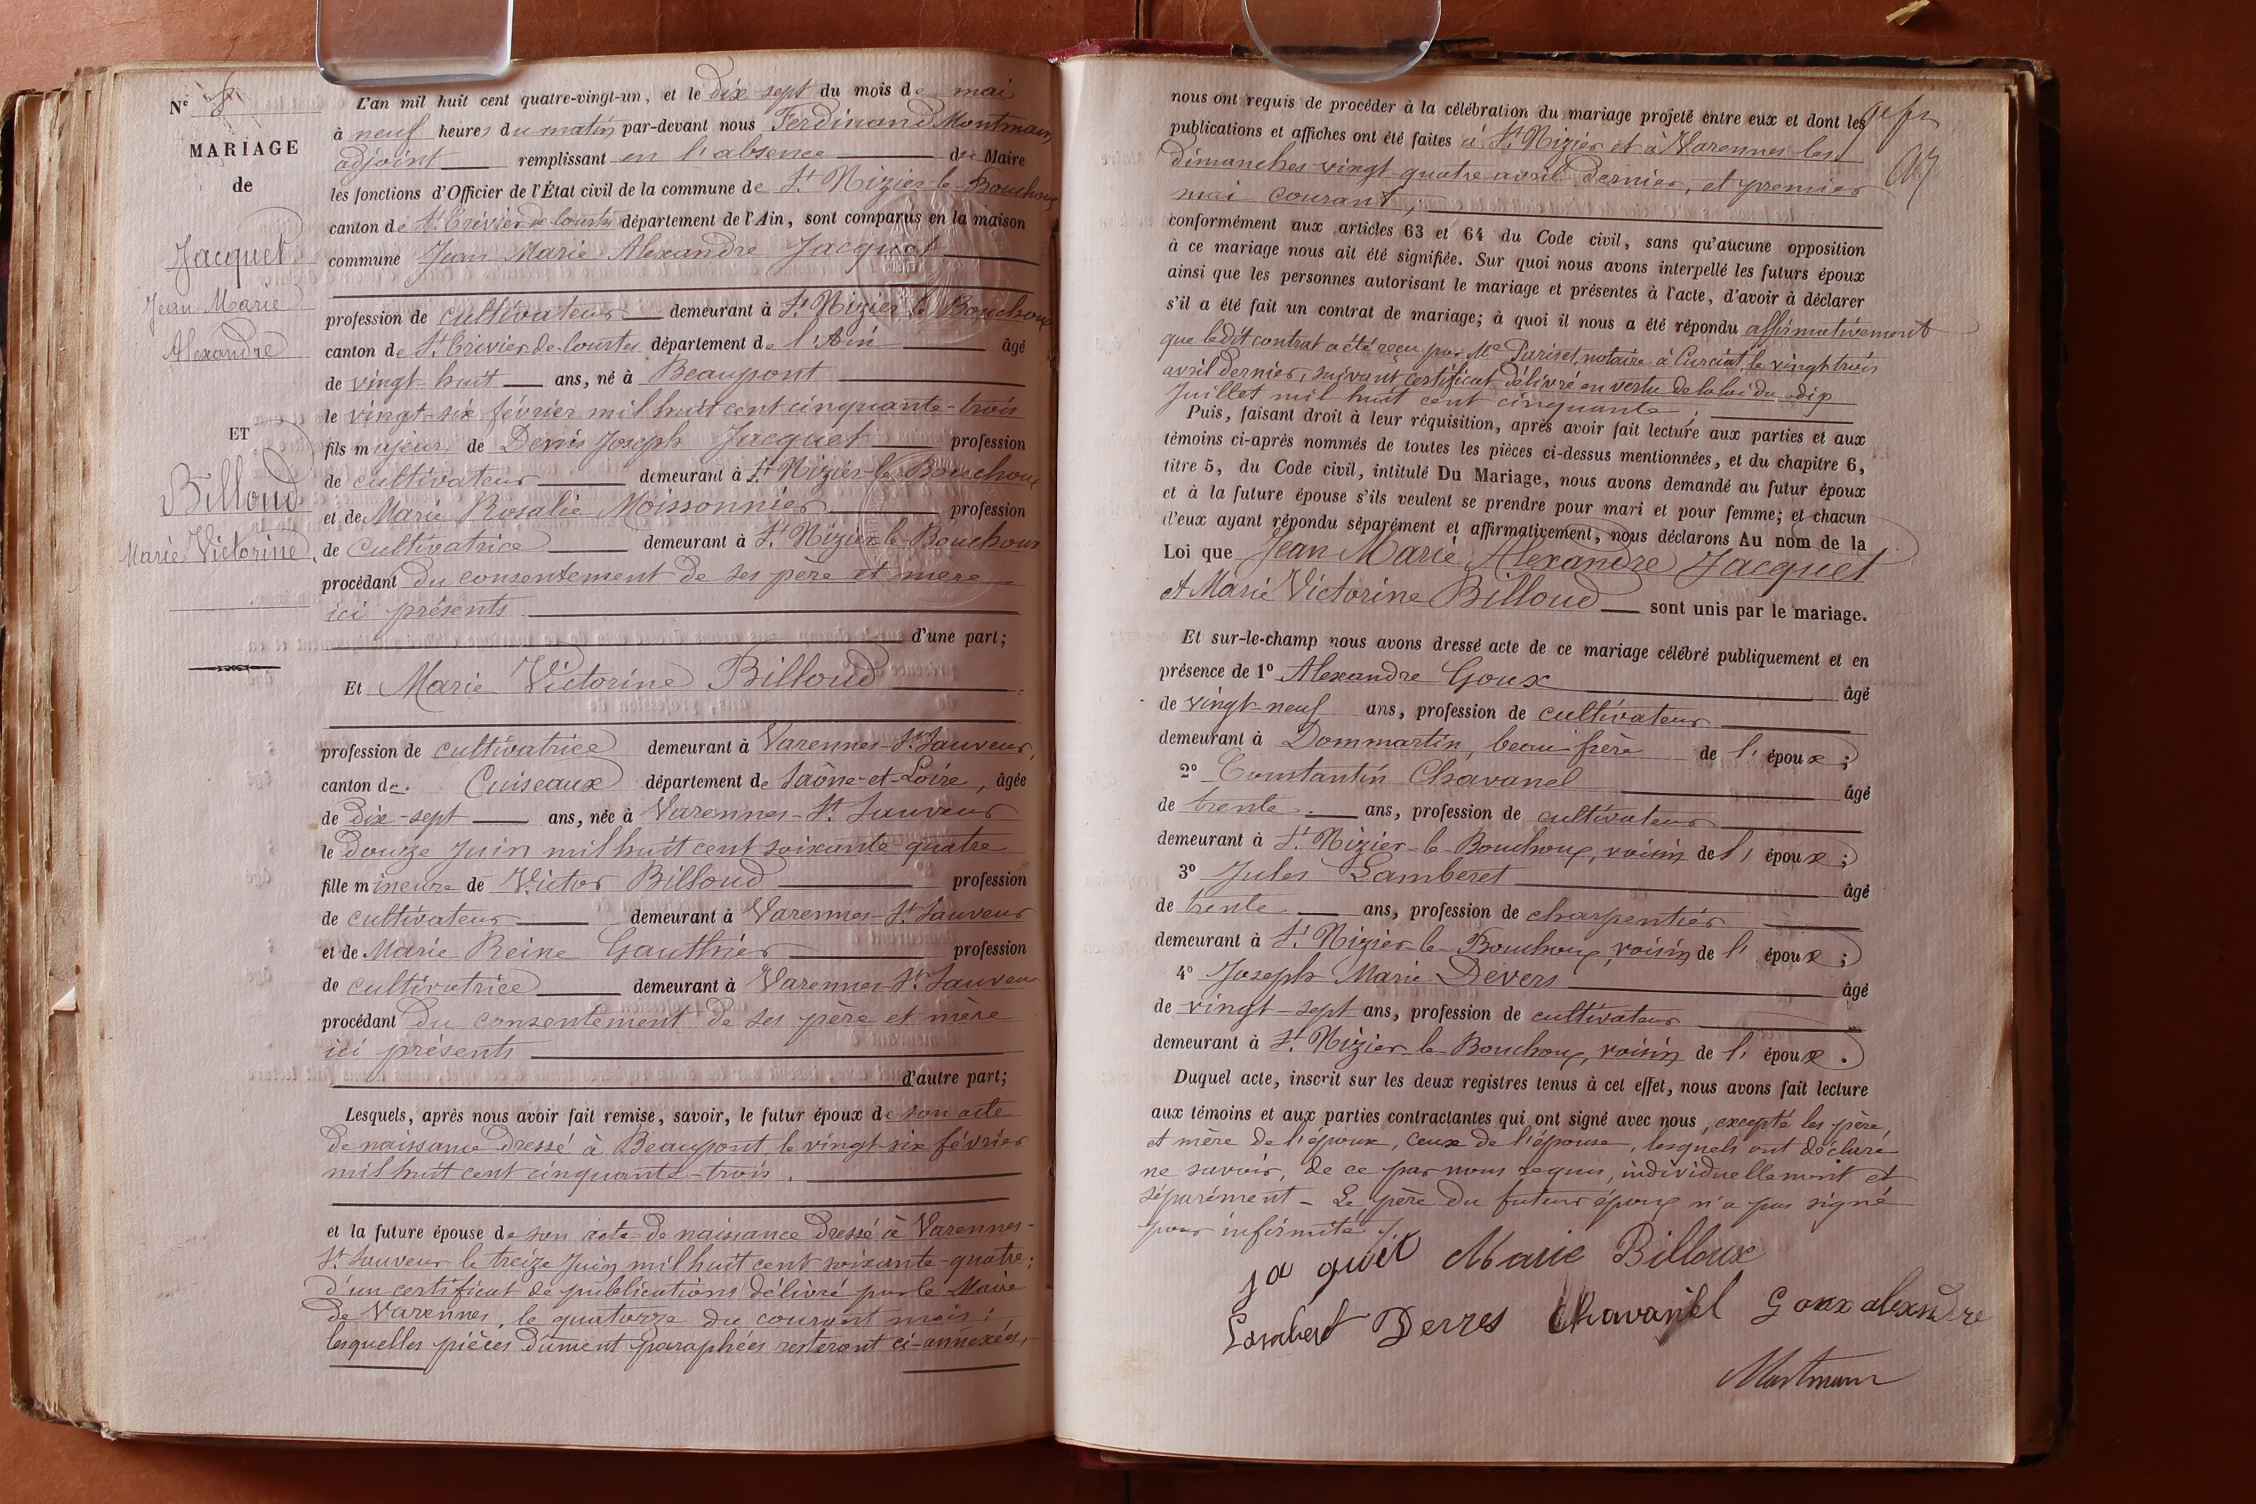 N°
MARIAGE
de
Jacquet
Jean Marie
Alexandre
ET
Billoud
Marie Victorine
L'an mil huit cent quatre-vingt-un, et le dix-sept du mois de mai
à neuf heures du matin par-devant nous Ferdinand Montmain,
adjoint remplissant en l'absence du Maire
les fonctions d'Officier de l'État civil de la commune de St Nizier-le-Bouchoux
canton de St Trivier de Courtes département de l'Ain, sont comparus en la maison
commune Jean Marie Alexandre Jacquet
profession de cultivateur demeurant à St Nizier le Bouchoux
canton de St Trivier de Courtes département de l'Ain âgé
de vingt-huit ans, né à Beaupont
le vingt-six février mil huit cent cinquante-trois
fils majeur de Denis Joseph Jacquet profession
de cultivateur demeurant à St Nizier-le-Bouchoux
et de Marie Rosalie Moissonnier profession
de cultivatrice demeurant à St Nizier-le-Bouchoux
procédant du consentement de ses père et mère
ici présents
d'une part;
Et Marie Victorine Billoud
profession de cultivatrice demeurant à Varennes-St Sauveur,
canton de Cuiseaux département de Saône-et-Loire, âgée
de dix-sept ans, née à Varennes-St Sauveur
le douze Juin mil huit cent soixante quatre
fille mineure de Victor Billoud profession
de cultivateur demeurant à Varennes-St Sauveur
et de Marie Reine Gauthier profession
de cultivatrice demeurant à Varennes-St Sauveur
procédant du consentement de ses père et mère
ici présents
d'autre part;
Lesquels, après nous avoir fait remise, savoir, le futur époux de son acte
de naissance dressé à Beaupont le vingt-six février
mil huit cent cinquante-trois.
et la future épouse de son acte de naissance dressé à Varennes-
St Sauveur le treize Juin mil huit cent soixante-quatre;
d'un certificat de publications délivré par le Maire
de Varennes, le quatorze du courant mois;
lesquelles pièces dûment paraphées resteront ci-annexées,
nous ont requis de procéder à la célébration du mariage projeté entre eux et dont les
publications et affiches ont été faites à St Nizier et à Varennes les
dimanches vingt-quatre avril dernier, et premier
mai courant,
conformément aux articles 63 et 64 du Code civil, sans qu'aucune opposition
à ce mariage nous ait été signifiée. Sur quoi nous avons interpellé les futurs époux
ainsi que les personnes autorisant le mariage et présentes à l'acte, d'avoir à déclarer
s'il a été fait un contrat de mariage; à quoi il nous a été répondu affirmativement
que ledit contrat a été reçu par Me Pariset, notaire à Curciat, le vingt trois
avril dernier, suivant certificat délivré en vertu de la loi du dix
Juillet mil huit cent cinquante.
Puis, faisant droit à leur réquisition, après avoir fait lecture aux parties et aux
témoins ci-après nommés de toutes les pièces ci-dessus mentionnées, et du chapitre 6,
titre 5, du Code civil, intitulé Du Mariage, nous avons demandé au futur époux
et à la future épouse s'ils veulent se prendre pour mari et pour femme; et chacun
d'eux ayant répondu séparément et affirmativement, nous déclarons Au nom de la
Loi que Jean Marie Alexandre Jacquet
et Marie Victorine Billoud sont unis par le mariage.
Et sur-le-champ nous avons dressé acte de ce mariage célébré publiquement et en
présence de 1° Alexandre Goux âgé
de vingt-neuf ans, profession de cultivateur
demeurant à Dommartin, beau-frère de l'époux;
2° Constantin Chavanel âgé
de trente ans, profession de cultivateur
demeurant à St Nizier-le-Bouchoux, voisin de l'époux;
3° Jules Lamberet âgé
de trente ans, profession de charpentier
demeurant à St Nizier-le-Bouchoux, voisin de l'époux;
4° Joseph Marie Devers âgé
de vingt-sept ans, profession de cultivateur
demeurant à St Nizier-le-Bouchoux, voisin de l'époux.
Duquel acte, inscrit sur les deux registres tenus à cet effet, nous avons fait lecture
aux témoins et aux parties contractantes qui ont signé avec nous, excepté les père,
et mère de l'époux, ceux de l'épouse, lesquels ont déclaré
ne savoir, de ce par nous requis, individuellement et
séparément - Le père du futur époux n'a pas signé
pour infirmité.
jaquet Marie Billoux
Lambert Derres Chavanel Goux alexndre
Montmain